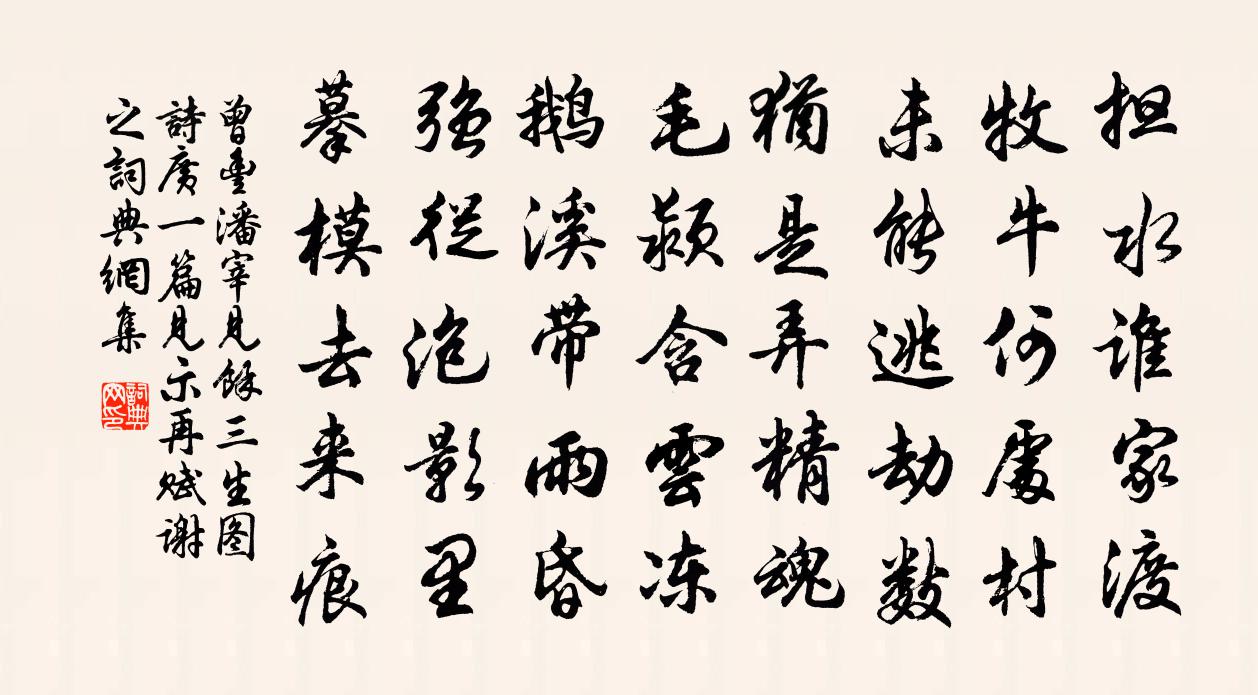 担水谁家渡
牧牛何處村
未能逃劫數
猶是弄精魂
毛颖含雲冻
鹅溪带雨昏
强從泡影里
摹模去来痕
曾豊潘宰見餘三生图
詩废一篇見示再赋谢
之詞典網集
詞典網印